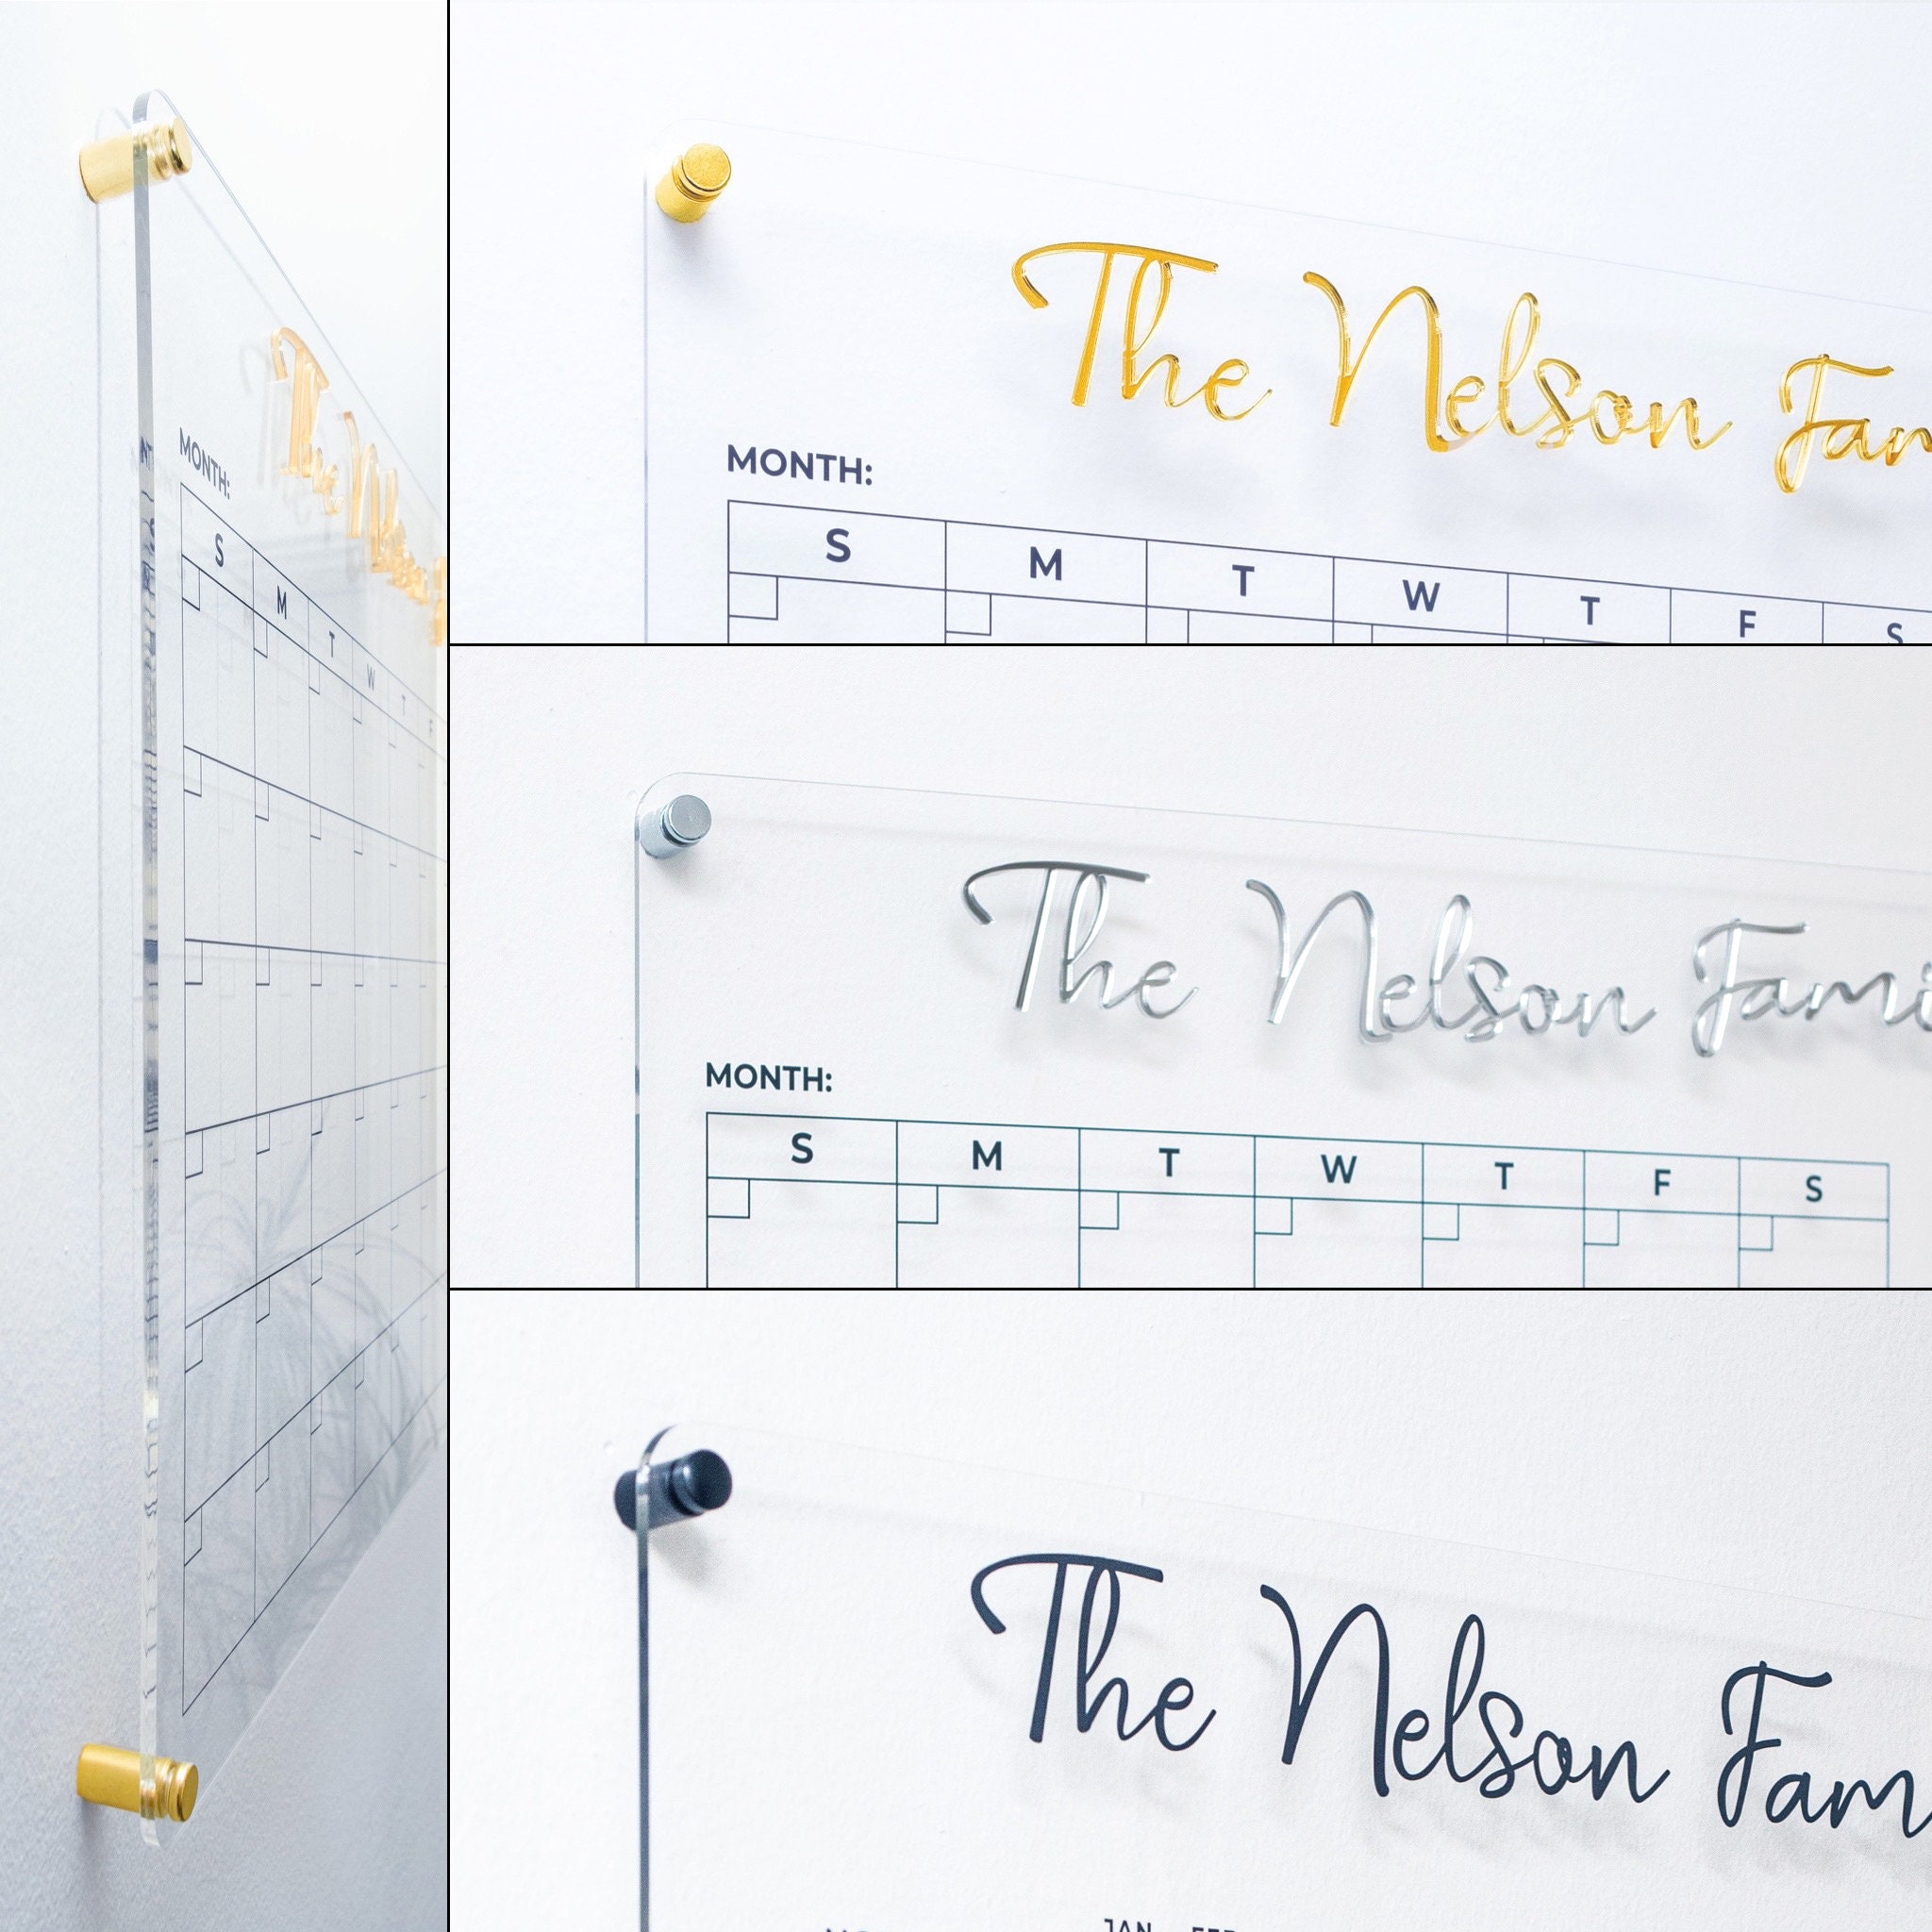 The N
MONTH:
S M T W T F
The Nelson Fam
MONTH:
S M T W T F S
The Nelson Fami
MONTH:
S M T W T F S
The Nelson Fam
JAN